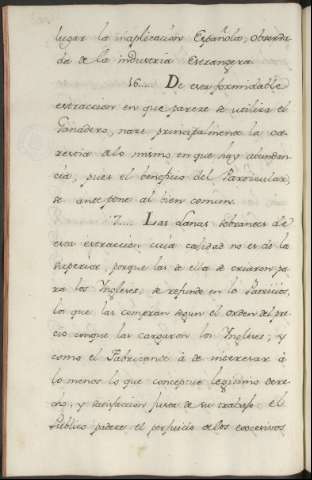 lugar la inaplicacion Española, observa
da de la industria Estrangera
16.... De esta formidable
extraccion en que parece se utiliza el
Ganadero, nace principalmente la ca-
restia de lo mismo en que hay abundan
cia, pues el beneficio del Particular,
se antepone al bien comun.
17.... Las Lanas sobrantes de
esta extraccion cuia calidad no es de la
superior, porque las de ella se extraron pa
ra los Yngleses, se refunde en los Patricios,
los que las compran segun el orden del pre
cio conque las cargaron los Yngleses, y
como el Fabricante á de interesar á
lo menos lo que conceptue legitimo dere
cho, y satisfaccion justa de su trabajo el
Publico padece el perjuicio de los excesivos